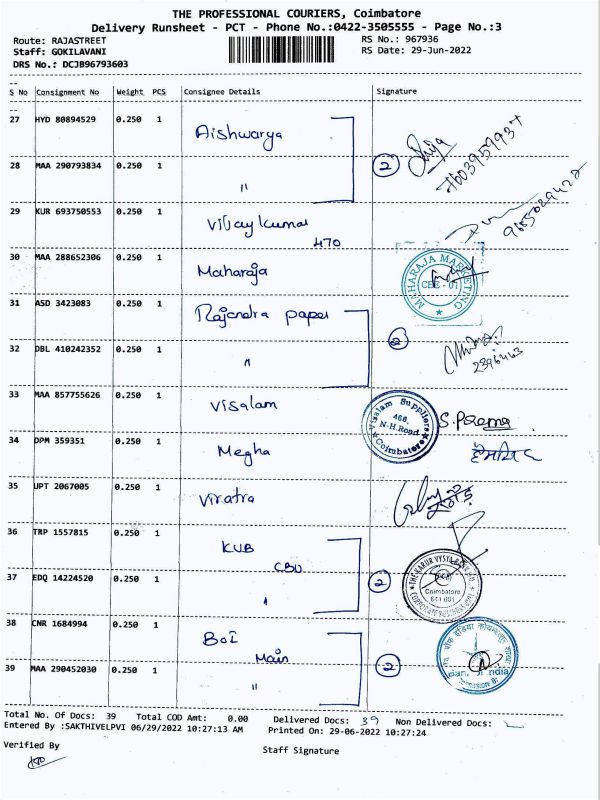 THE PROFESSIONAL COURIERS, Coimbatore
Delivery Runsheet - PCT - Phone No.:0422-3505555 - Page No.:3
Route: RAJASTREET RS No.: 967936
Staff: GOKILAVANI RS Date: 29-Jun-2022
DRS No.: DCJB96793603
S No Consignment No Weight PCS Consignee Details Signature
27 HYD 80894529 0.250 1 Aishwarya
28 MAA 290793834 0.250 1 " 2
29 KUR 693750553 0.250 1 Vijaykumar
470
30 MAA 288652306 0.250 1 Maharaja MAHARAJA MARKETING
31 ASD 3423083 0.250 1 Rajendra paper
32 DBL 410242352 0.250 1 " 2
2396463
33 MAA 857755626 0.250 1 Visalam Visalam Suppliers 466, N-H.Road, Coimbatore
34 DPM 359351 0.250 1 Megha
35 UPT 2067005 0.250 1 Viratra
36 TRP 1557815 0.250 1 KUB
CBU
37 EDQ 14224520 0.250 1 " 2 THE KARUR VYSYA BANK Coimbatore 641 001
38 CNR 1684994 0.250 1 BOI
Main
39 MAA 290452030 0.250 1 " 2
Total No. Of Docs: 39 Total COD Amt: 0.00 Delivered Docs: 39 Non Delivered Docs:
Entered By :SAKTHIVELPVI 06/29/2022 10:27:13 AM Printed On: 29-06-2022 10:27:24
Verified By Staff Signature